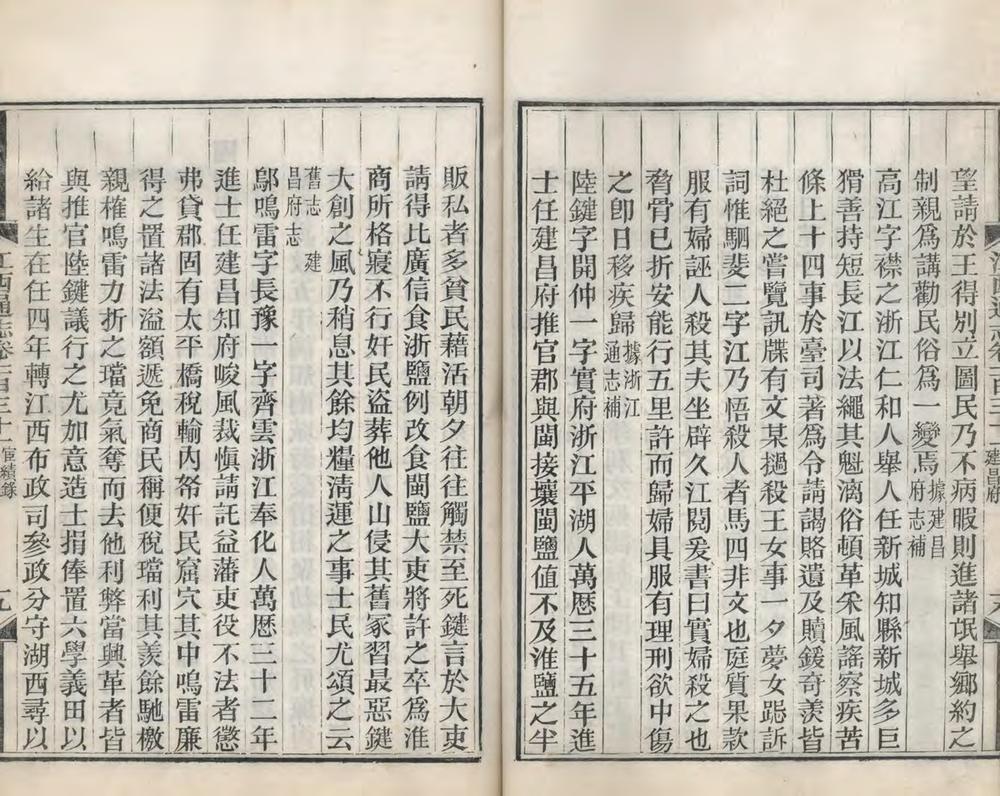 江西通志卷一百三十一 建昌府
望請於王得別立圖民乃不病暇則進諸氓舉鄉約之
制親爲講勸民俗爲一變焉據建昌府志補
高江字襟之浙江仁和人舉人任新城知縣新城多巨
猾善持短長江以法繩其魁漓俗頓革采風謠察疾苦
條上十四事於臺司著爲令請謁賂遺及贖鍰奇羨皆
杜絕之嘗覽訊牒有文某撾殺王女事一夕夢女跽訴
詞惟駟斐二字江乃悟殺人者馬四非文也庭質果款
服有婦誣人殺其夫坐辟久江閱爰書曰實婦殺之也
脅骨已折安能行五里許而歸婦具服有理刑欲中傷
之卽日移疾歸據浙江通志補
陸鍵字開仲一字實府浙江平湖人萬厯三十五年進
士任建昌府推官郡與閩接壤閩鹽値不及淮鹽之半
販私者多貧民藉活朝夕往往觸禁至死鍵言於大吏
請得比廣信食浙鹽例改食閩鹽大吏將許之卒爲淮
商所格寢不行奸民盜葬他人山侵其舊冢習最惡鍵
大創之風乃稍息其餘均糧淸運之事士民尤頌之云
舊志 建昌府志
鄔鳴雷字長豫一字齊雲浙江奉化人萬厯三十二年
進士任建昌知府峻風裁愼請託益藩吏役不法者懲
弗貸郡固有太平橋稅輸內帑奸民窟穴其中鳴雷廉
得之置諸法溢額遞免商民稱便稅璫利其羨餘馳檄
親榷鳴雷力折之璫竟氣奪而去他利弊當興革者皆
與推官陸鍵議行之尤加意造士捐俸置六學義田以
給諸生在任四年轉江西布政司參政分守湖西尋以
江西通志卷一百三十一 宦績錄